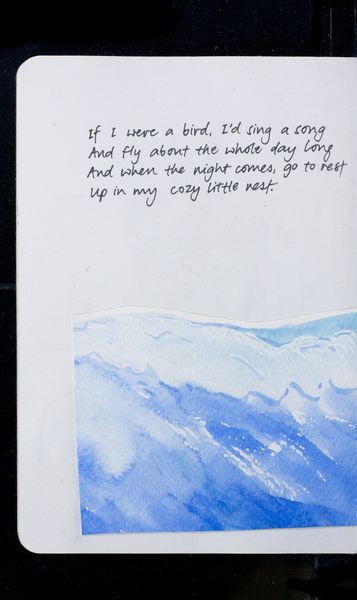 If I were a bird, I'd sing a song
And fly about the whole day long
And when the night comes, go to rest
Up in my cozy little nest.